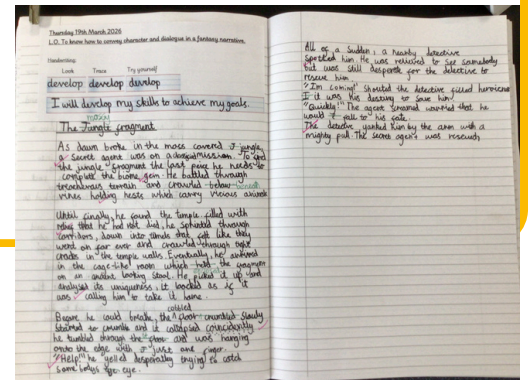 Thursday 19th March 2026
L.O. To know how to convey character and dialogue in a fantasy narrative.
Handwriting:
Look Trace Try yourself
develop develop develop
I will develop my skills to achieve my goals.
mossy
The Jungle fragment
As dawn broke in the moss covered jungle,
a secret agent was on a mission. To find
the jungle fragment the last peice he needs to
complete the biome gem. He battled through
treacherous terrain and crawled below beneath
vines holding which carry vicious animals
Until finally, he found the temple filled with
relief that he had not died, he sprinted through
corridors, down into that felt like they
went on for ever and crawled through tight
cracks in the temple walls. Eventually, he arrived
in the cage-like room which held the fragment
on an ancient looking stool. He picked it up and
analysed its uniqueness, it looked as if it
was calling him to take it home.
cobbled
Before he could breathe, the floor crumbled slowly
started to crumble and it collapsed coincidently
he tumbled through the floor and was hanging
onto the edge with just one finger.
"Help!" he yelled desperatley trying to catch
somebody's eye.
All of a sudden, a nearby detective
spotted him. He was relieved to see somebody
but was still desperate for the detective to
rescue him.
"I'm coming!" Shouted the detective filled heroicness
it was his destiny to save him.
"Quickly!" The agent screamed worried that he
would fall to his fate.
The detective yanked him by the arm with a
mighty pull. The secret agent was rescued